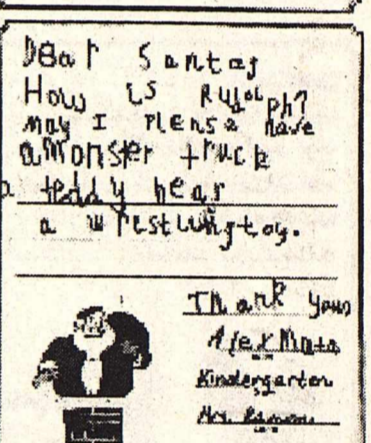 Dear Santa,
How is Rudolph?
may I please have
a monster truck
a teddy bear
a wrestling toy.
Thank you,
Alex
Kindergarten
Mrs.